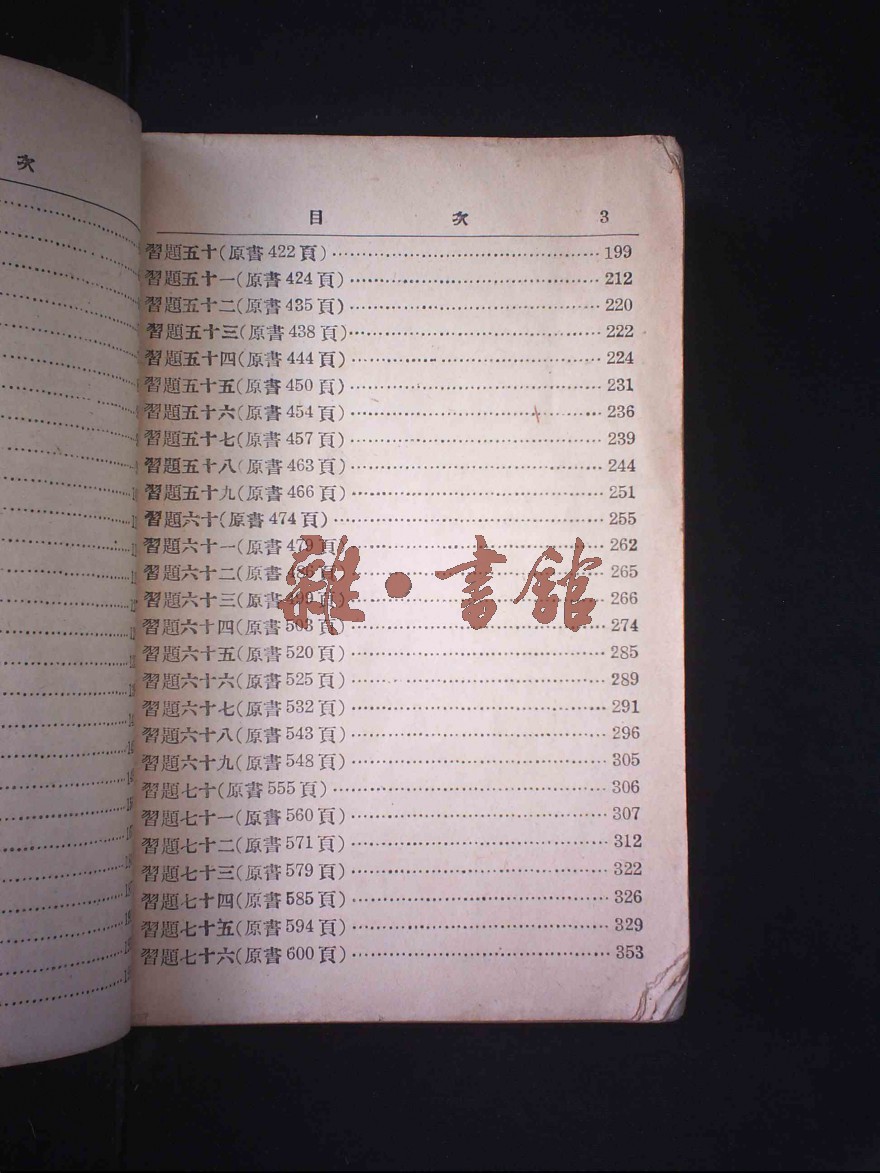 次
目 次 3
習題五十(原書422頁)……199
習題五十一(原書424頁)……212
習題五十二(原書435頁)……220
習題五十三(原書438頁)……222
習題五十四(原書444頁)……224
習題五十五(原書450頁)……231
習題五十六(原書454頁)……236
習題五十七(原書457頁)……239
習題五十八(原書463頁)……244
習題五十九(原書466頁)……251
習題六十(原書474頁)……255
習題六十一(原書479頁)……262
習題六十二(原書486頁)……265
習題六十三(原書499頁)……266
雜·書館
習題六十四(原書503頁)……274
習題六十五(原書520頁)……285
習題六十六(原書525頁)……289
習題六十七(原書532頁)……291
習題六十八(原書543頁)……296
習題六十九(原書548頁)……305
習題七十(原書555頁)……306
習題七十一(原書560頁)……307
習題七十二(原書571頁)……312
習題七十三(原書579頁)……322
習題七十四(原書585頁)……326
習題七十五(原書594頁)……329
習題七十六(原書600頁)……353